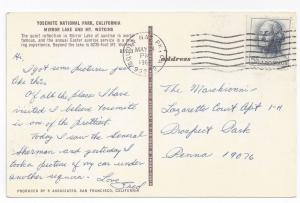 YOSEMITE NATIONAL PARK, CALIFORNIA
MIRROR LAKE AND MT. WATKINS
The quiet reflection in Mirror Lake at sunrise is world
famous, and the annual Easter sunrise service is a
ing experience. Beyond the lake is 8235-foot Mt. Watkins.
Hi,
I got some pictures just
like this.
Of all the places I have
visited I believe Yosemite
is one of the prettiest.
Today I saw the General
Sherman and yesterday I
took a picture of my car under
another sequoia. Love
Fred
PRODUCED BY H ASSOCIATES, SAN FRANCISCO, CALIFORNIA
MAY
PM
Address
The
Lazaretto Court Apt
Prospect Park
Penna 19076